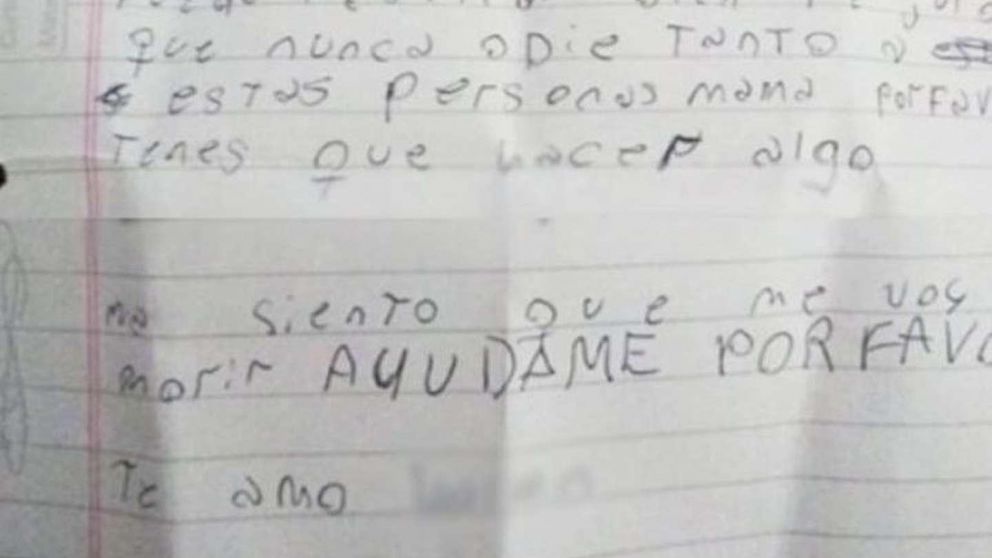 que nunca odie TanTO a
esTas personas mama porfav
Tenes que hacer algo
me siento que me voy
morir AYUDAME POR FAVO
Te amo